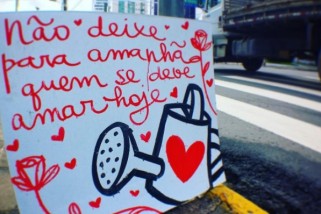 não deixe
para amanhã
quem se deve
amar hoje